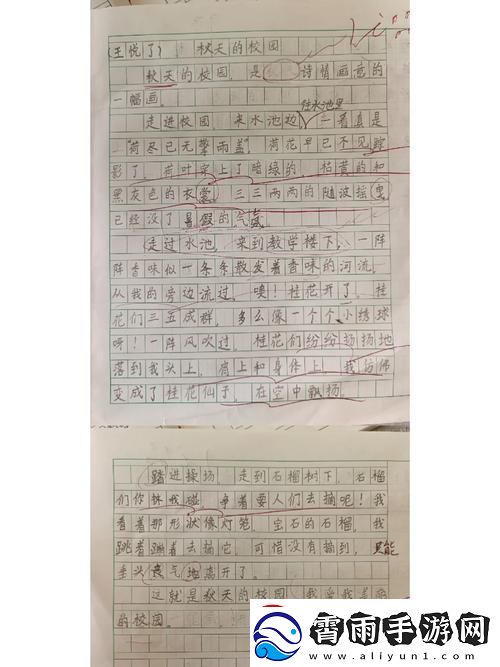 (王悦了) 秋天的校园
秋天的校园，是诗情画意的
一幅画。
往水池里
走进校园，来水池边，一看真是
“荷尽已无擎雨盖”，荷花早已不见踪
影了，荷叶穿上了暗绿的、枯黄的和
黑灰色的衣裳，三三两两的随波摇曳，
已经没了暑假的气氛。
走过水池，来到教学楼下，一阵
阵香味似一条条散发着香味的河流，
从我的旁边流过。噢！桂花开了，桂
花们三五成群，多么像一个个小绣球
呀！一阵风吹过，桂花们纷纷扬扬地
落到我头上，肩上和身体上，我仿佛
变成了桂花仙子，在空中飘扬。
踏进操场，走到石榴树下，石榴
们你挤我碰，争着要人们去摘呢！我
看着那形状像灯笼，宝石的石榴，我
跳着蹦着去摘它，可惜没有摘到，只能
垂头丧气地离开了。
这就是秋天的校园，我爱我
的校园。
霄雨手游网
www.aliyun1.com